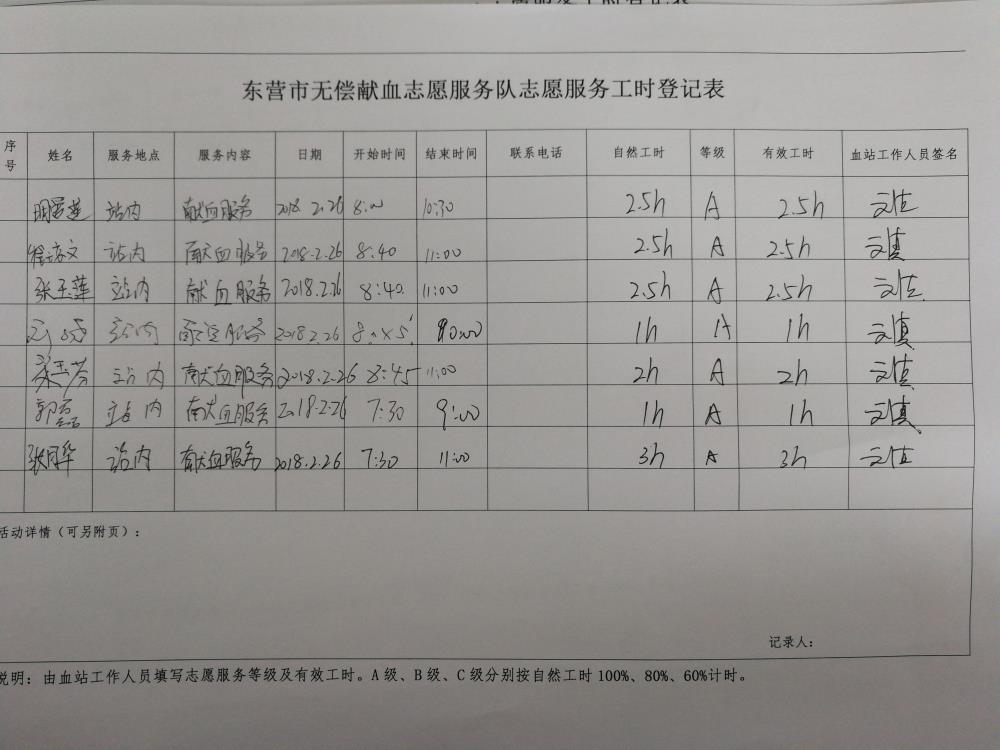 东营市无偿献血志愿服务队志愿服务工时登记表
序号 姓名 服务地点 服务内容 日期 开始时间 结束时间 联系电话 自然工时 等级 有效工时 血站工作人员签名
站内 献血服务 2018.2.26 8:00 10:30 2.5h A 2.5h
站内 献血服务 2018.2.26 8:40 11:00 2.5h A 2.5h
张玉莲 站内 献血服务 2018.2.26 8:40 11:00 2.5h A 2.5h
站内 献血服务 2018.2.26 1h A 1h
站内 献血服务 2018.2.26 8:45 11:00 2h A 2h
郭磊 站内 献血服务 2018.2.26 7:30 9:00 1h A 1h
站内 献血服务 2018.2.26 7:30 11:00 3h A 3h
活动详情（可另附页）：
记录人：
说明：由血站工作人员填写志愿服务等级及有效工时。A级、B级、C级分别按自然工时100%、80%、60%计时。